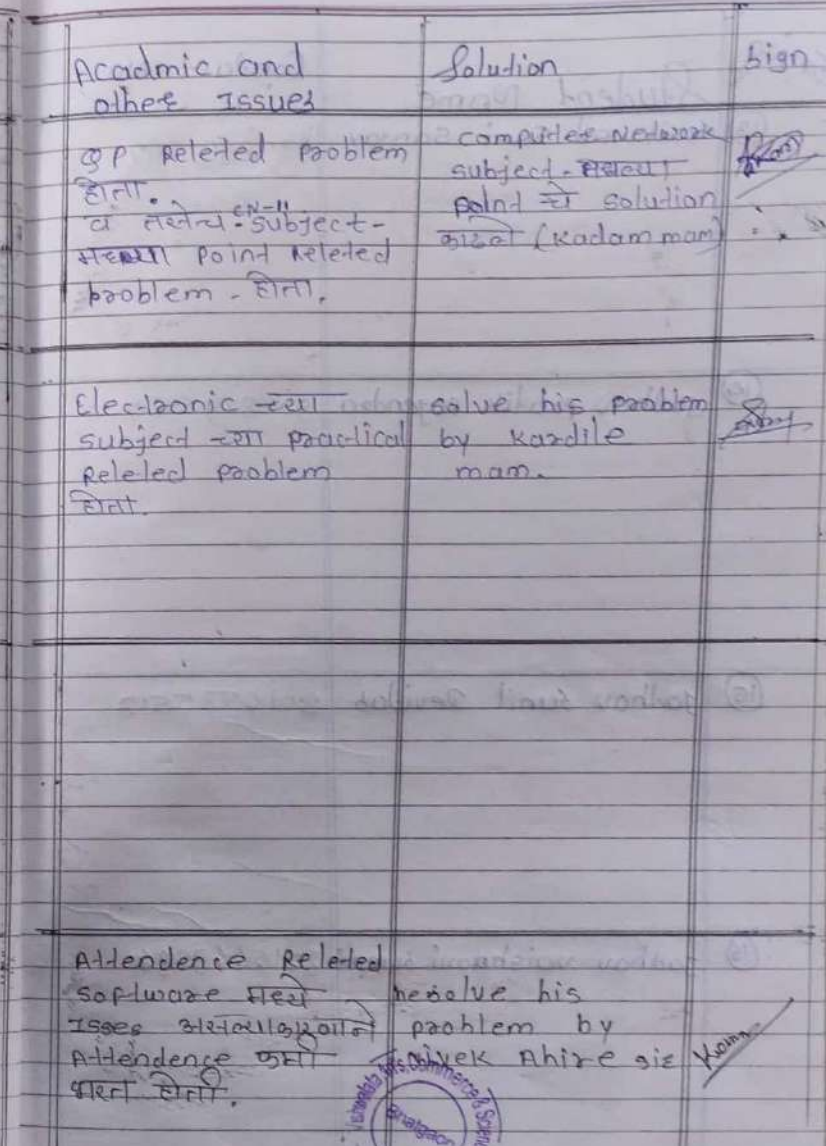 Acadmic and
other Issues
Solution
Sign
QP Releted Problem
होता.
व तसेच CN-II subject-
मधल्या Point Releted
problem - होता.
Computer Network
subject - मधल्या
point चे solution
काढले (Kadam mam)
Electronic च्या
subject च्या practical
Releled problem
होता.
solve his problem
by Kardile
mam.
Attendence Releted
Software मध्ये
Isses असल्याकारणाने
Attendence कमी
भरत होती.
resolve his
problem by
Vivek Ahire sir
Commerce & Scien
Bhatgaon